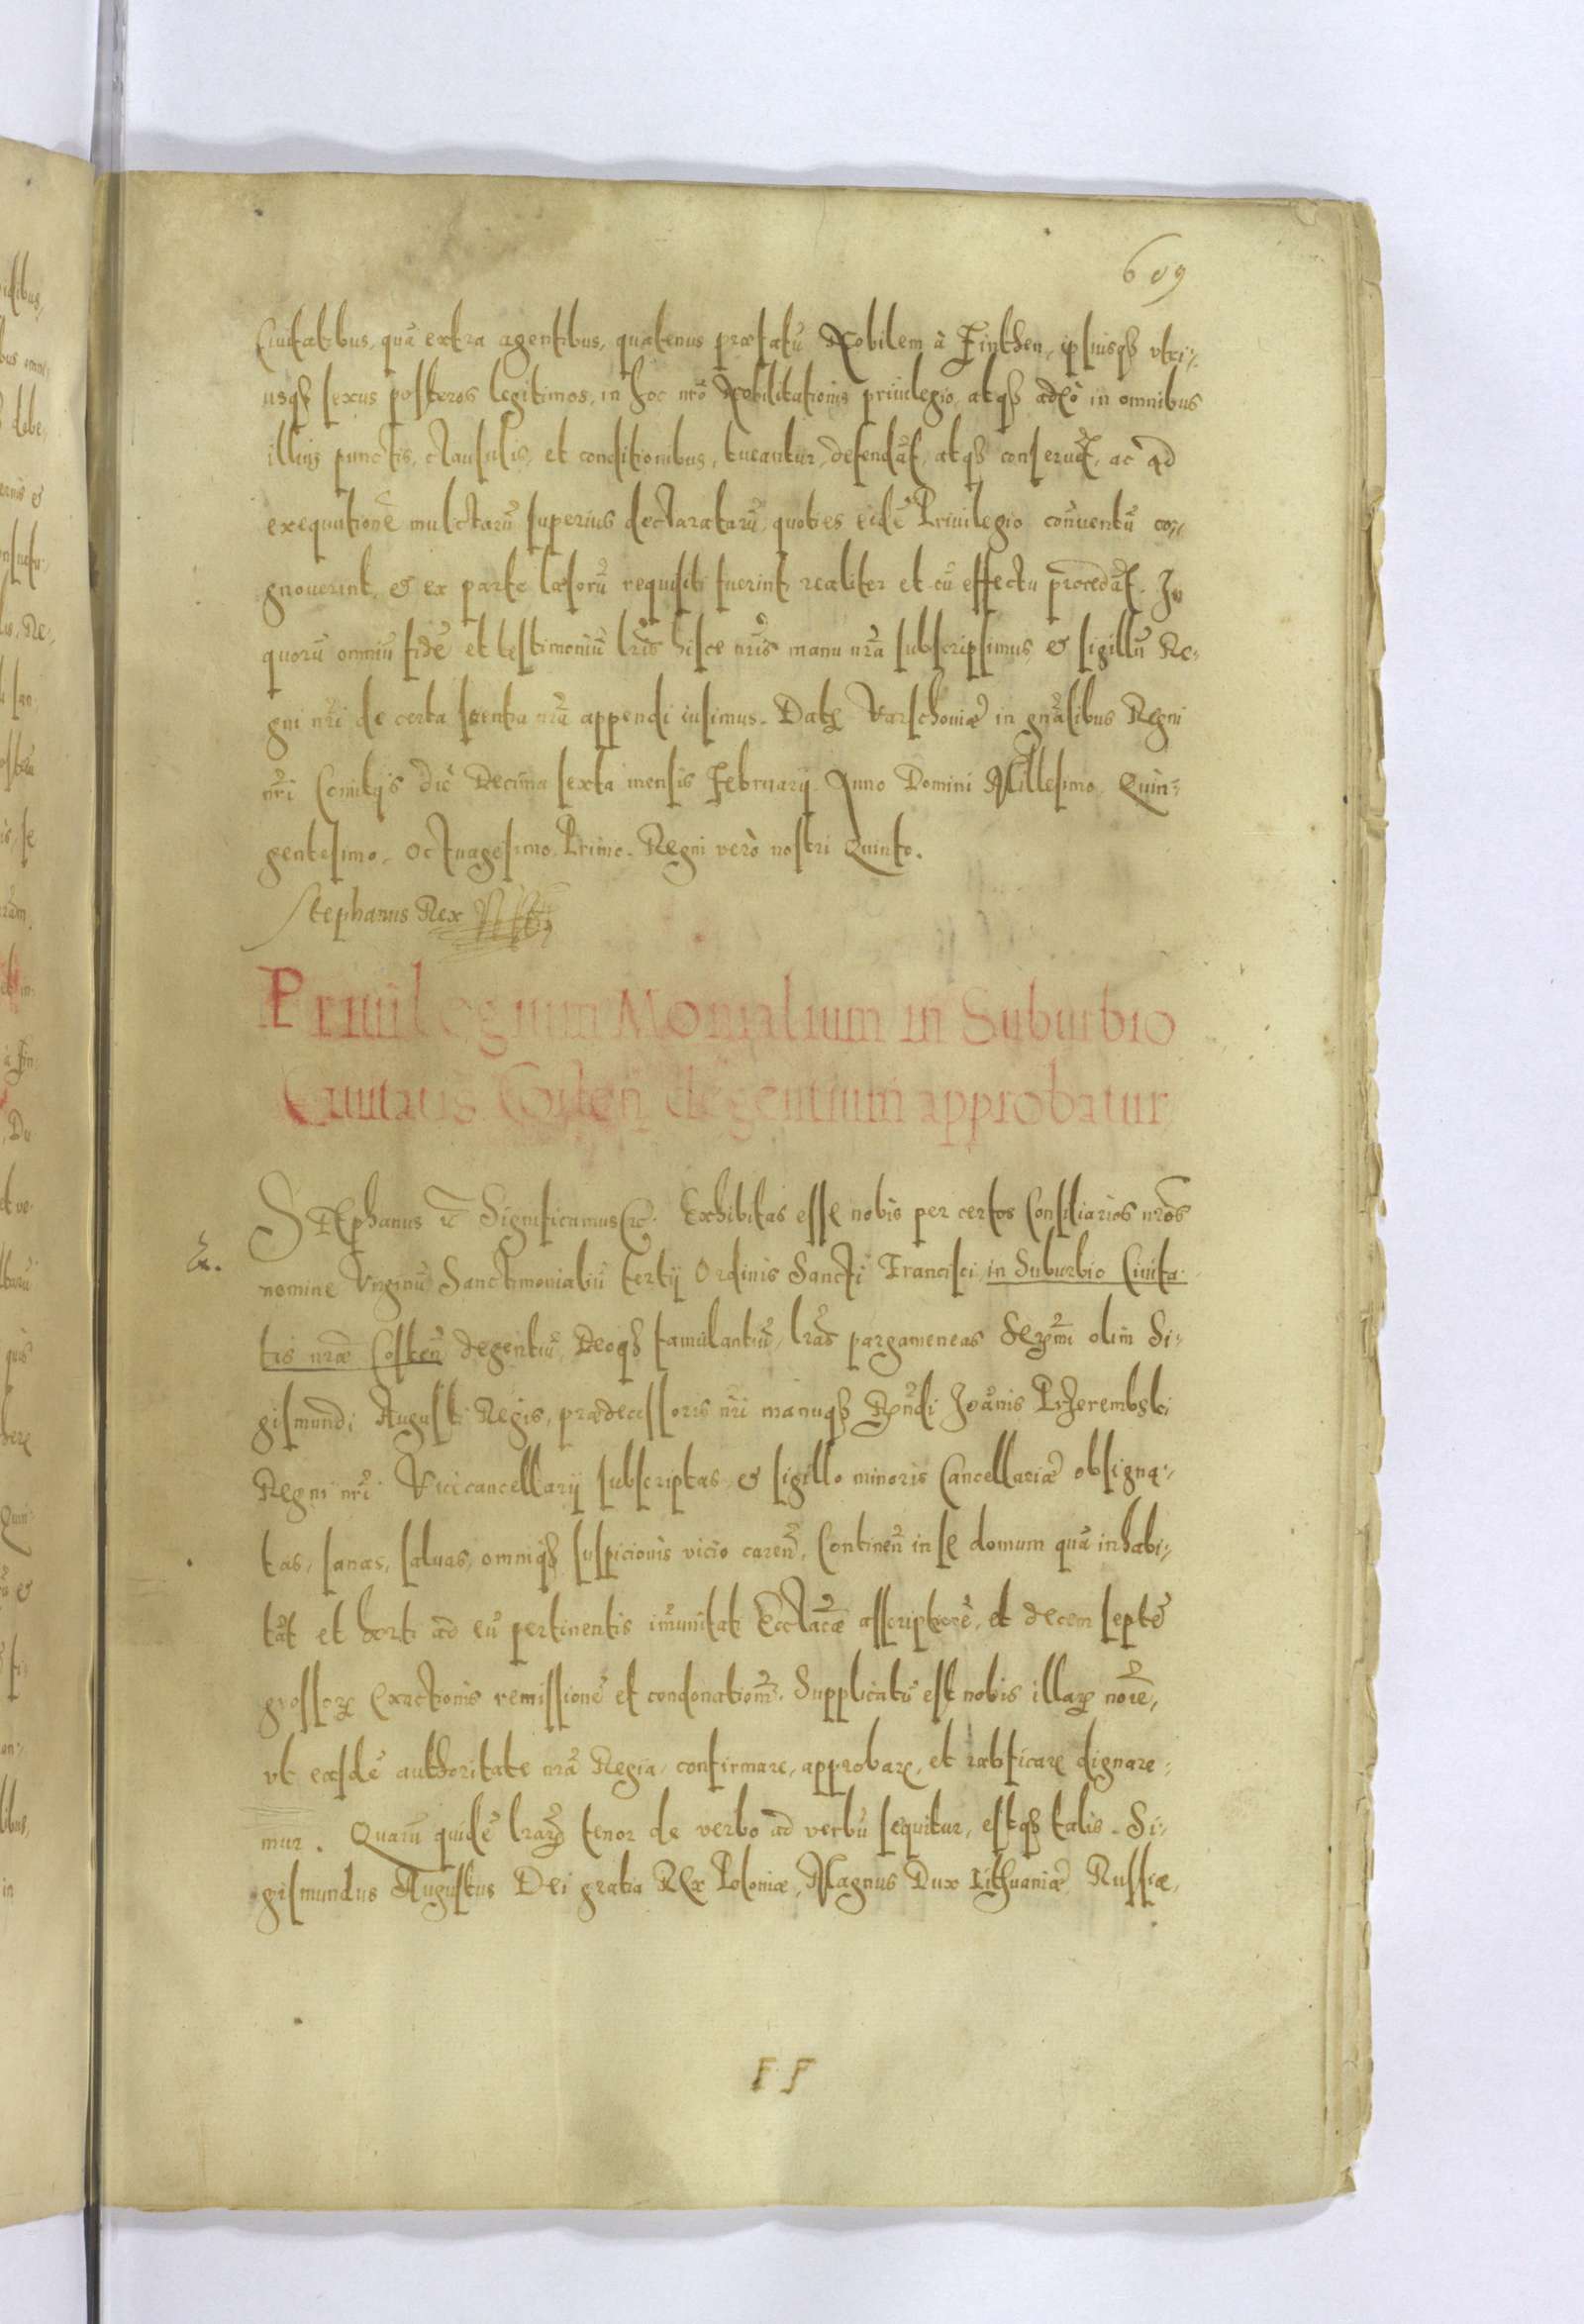 609
Ciuitatibus, quā extra agentibus, quatenus præfatū Nobilem à Finthen, ipsiusqȝ vtri-
usqȝ sexus posteros legitimos, in hoc nrō Nobilitationis priuilegio, atqȝ adeò in omnibus
illius punctis, clausulis, et conditionibus, tueantur, defendāt, atqȝ conseruēt, ac ad
exequutionē mulctarū superius declaratarū, quoties eidē Priuilegio cōuentū co-
gnouerint, & ex parte læsorū requisiti fuerint, realiter et cū effectu procedāt. In
quorū omniū fidē et testimoniū lrīs hisce nrīs manu nrā subscripsimus, & sigillū Re-
gni nrī de certa scientia nrā appendi iusimus. Datȝ Varschouiæ in gnālibus Regni
nrī Comitijs die Decima sexta mensis Februarij. Anno Domini Millesimo Quin-
gentesimo, Octuagesimo Primo. Regni verò nostri Quinto.
Stephanus Rex
Priuilegium Monialium in Suburbio
Ciuitatis Costen̄ degentium approbatur
STEphanus &c Significamus &c. Exhibitas esse nobis per certos Consiliarios nrōs
nomine Virginū Sanctimonialiū tertij Ordinis Sancti Francisci in Suburbio Ciuita-
tis nræ Costen̄ degentiū, Deoqȝ famulantiū, lrās pargameneas Serm̄i olim Si-
gismundi Augusti Regis, prædecessoris nrī manuqȝ Rn̄di Joānis Przerembski
Regni nrī Vicecancellarij subscriptas & sigillo minoris Cancellariæ obsigna-
tas, sanas, saluas, omniqȝ suspicionis vicio caren̄, Continen̄ in se domum quā inhabi-
tāt et horti ad eū pertinentis im̄unitati Eccl̄acæ asscriptionē, et decem septē
grossorȝ Exactionis remissionē et condonationē. Supplicatū est nobis illarȝ noīe,
vt easdē authoritate nrā Regia, confirmare, approbare, et ratificare dignare-
mur. Quarū quidē lrarȝ tenor de verbo ad verbū sequitur, estqȝ talis. Si-
gismundus Augustus Dei gratia REx Poloniæ, Magnus Dux Lithuaniæ, Russiæ,
F F